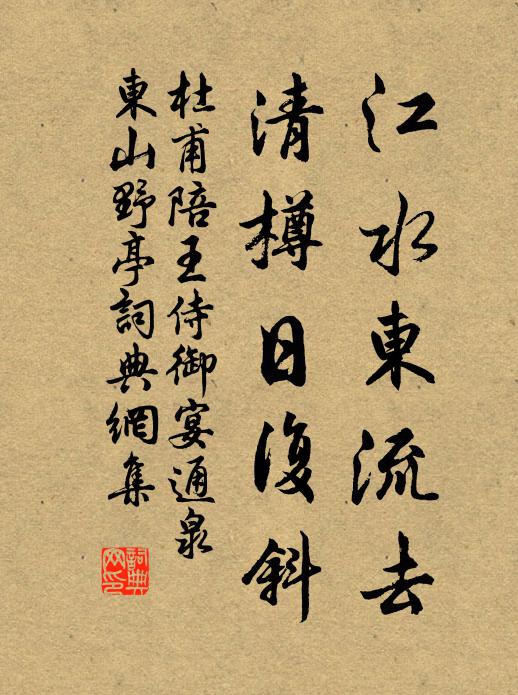 江水東流去
清樽日復斜
杜甫陪王侍御宴通泉
東山野亭詞典網集
詞典网印